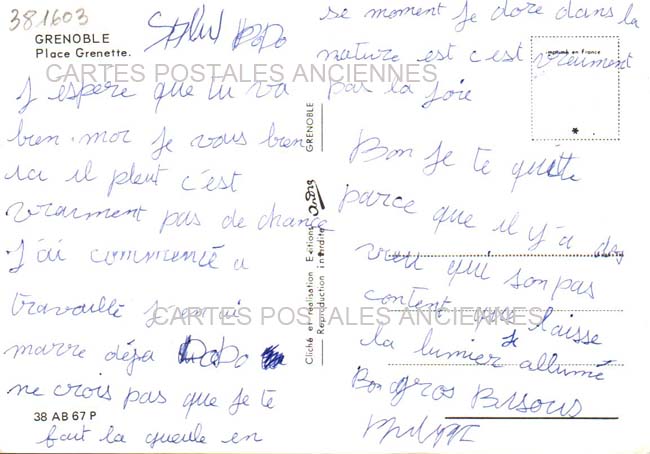 381603
GRENOBLE
Place Grenette.
Salut DoDo
CARTES POSTALES ANCIENNES
J espere que tu va
bien. moi je vous bien
ici il pleut c'est
vraiment pas de chance
J'ai commencé a
travaillé J'en ai
CARTES POSTALES ANCIENNES
marre déja DoDo
ne crois pas que Je te
38 AB 67 P
fait la gueule en
GRENOBLE
Cliché et réalisation Editions André
Reproduction interdite
se moment Je dore dans la
nature est c'est vraiment
Imprimé en France
par la Joie
Bon Je te quitte
parce que il y'a des
vieu qui son pas
content que Je laisse
la lumier allumé
Bon gros Bisous